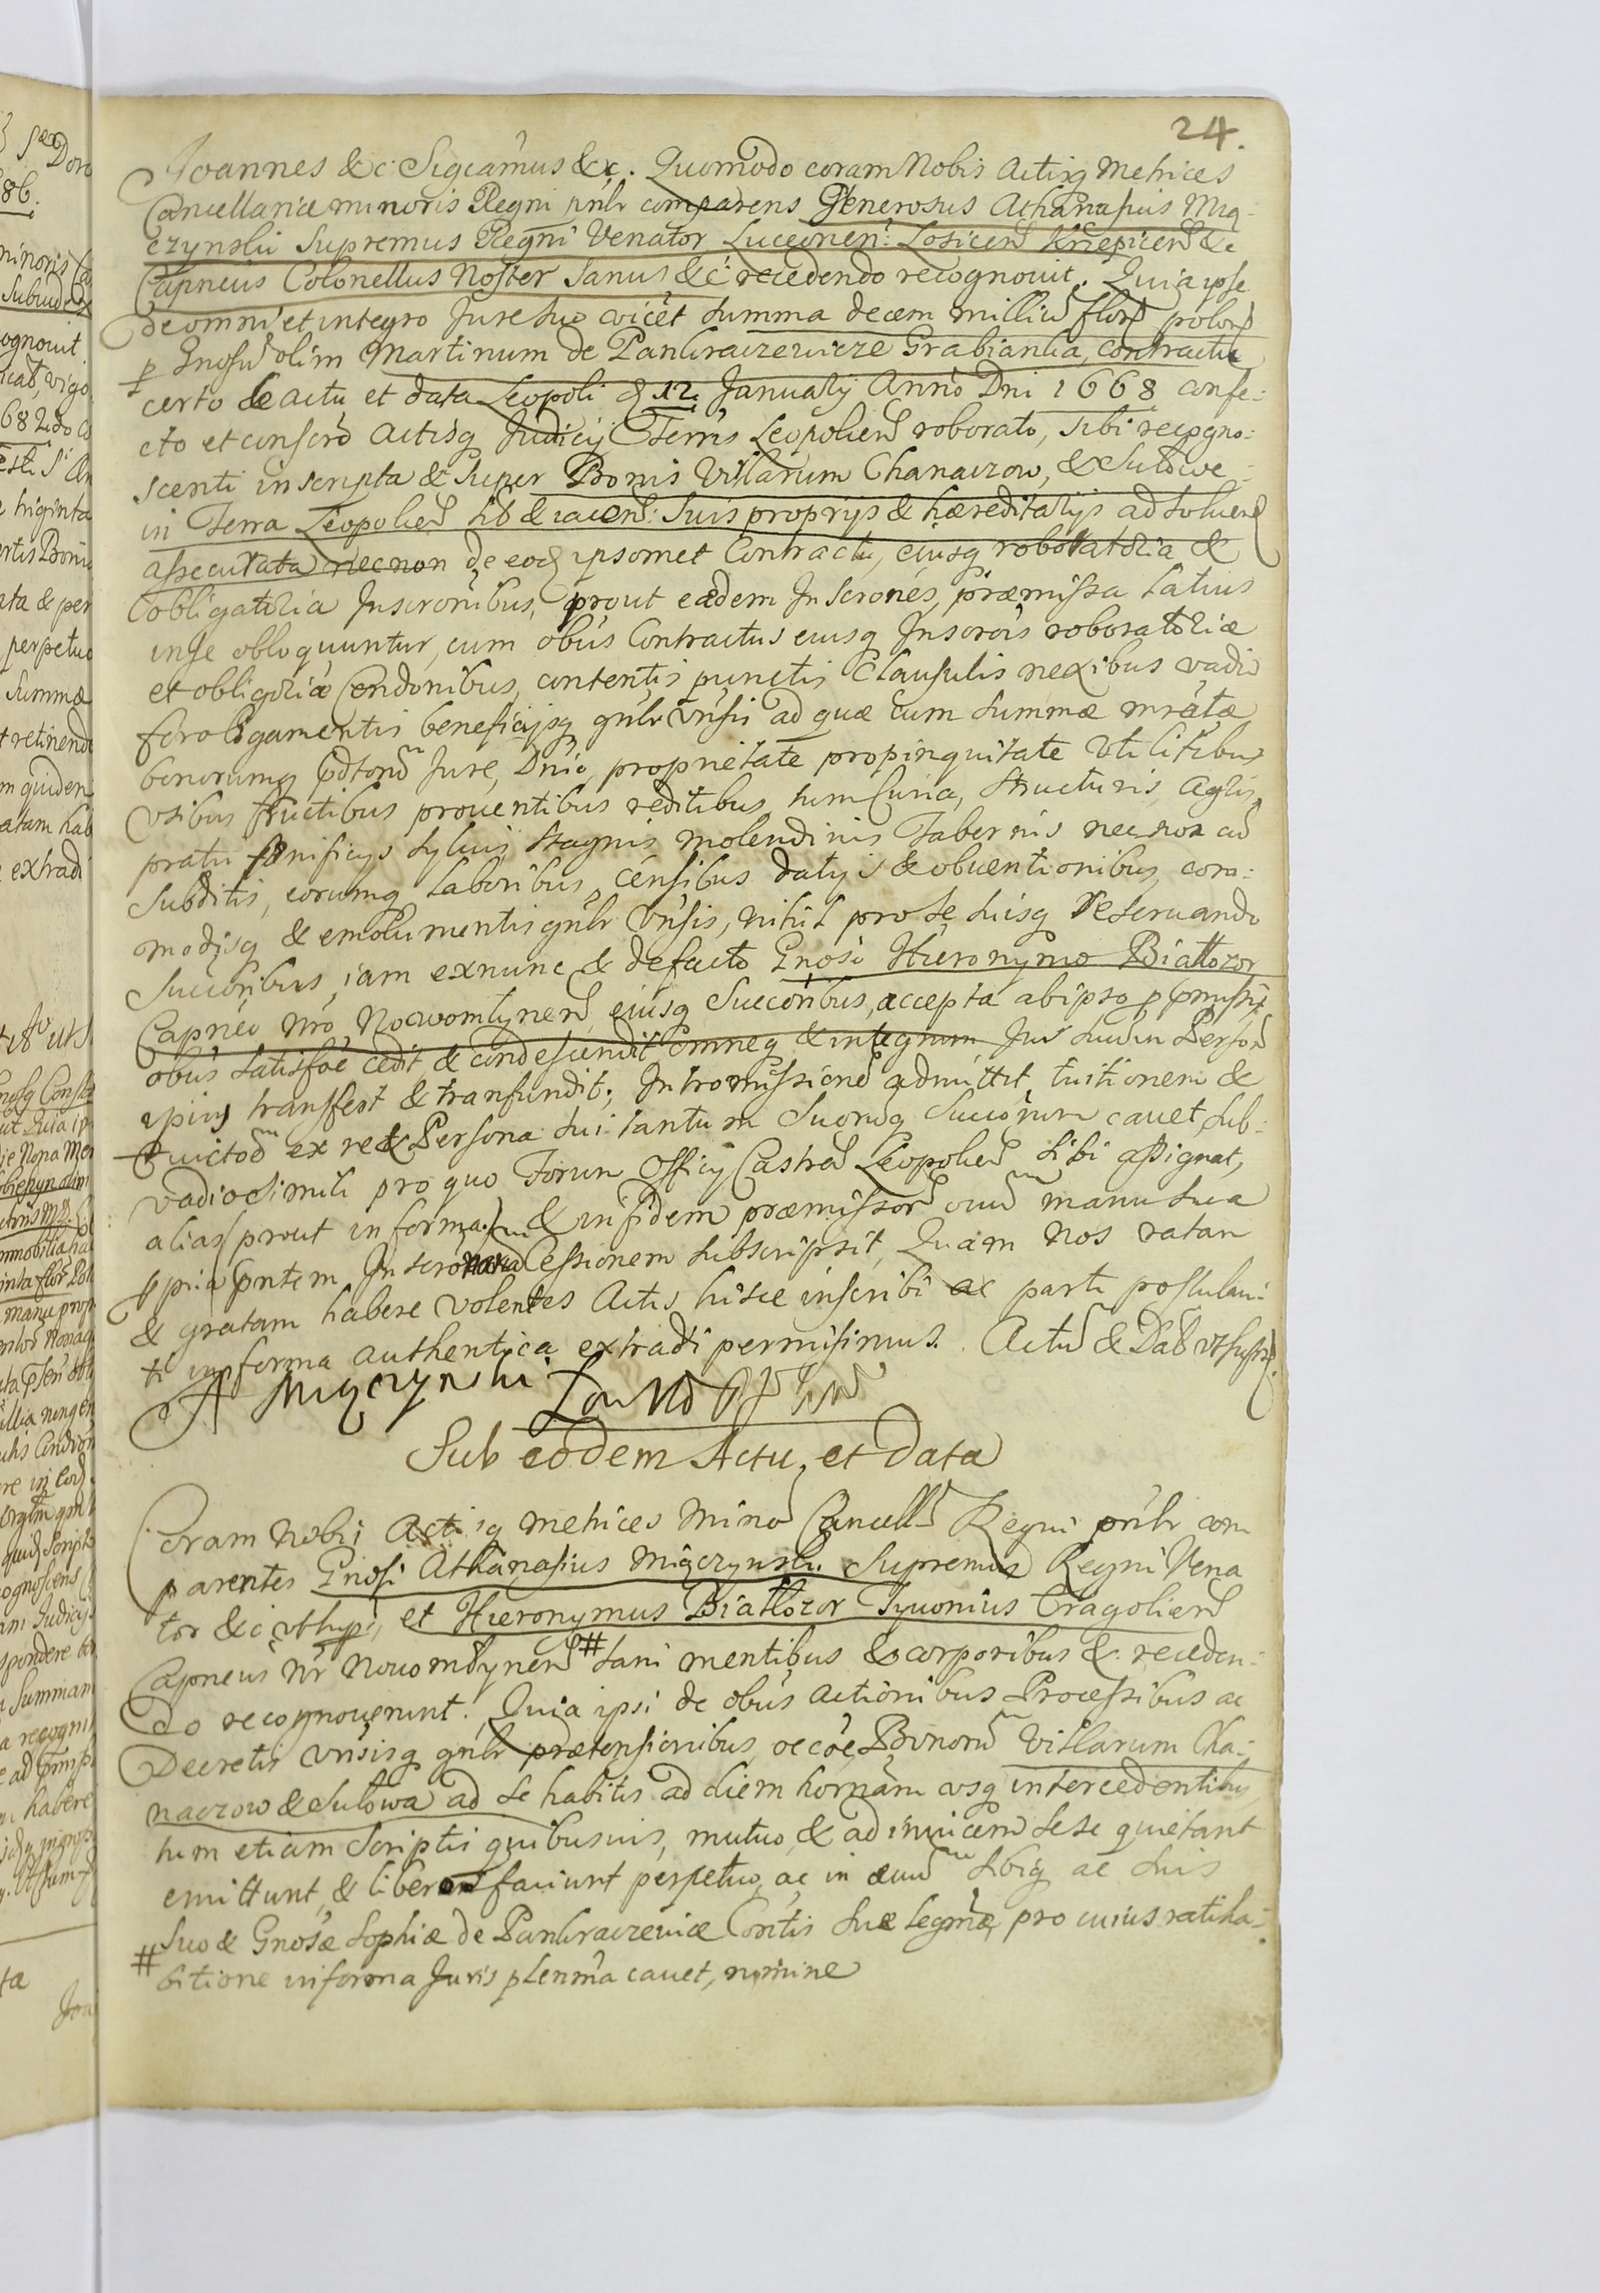 24.
Joannes &c Sigcamus &c. Quomodo coram Nobis Actisq Metrices
Cancellariæ minoris Regni pnlr comparens Generosus Athanasius Mią-
czynski Supremus Regni Venator Luceorien: Losicen Krzepicen &c
Capneus Colonellus Noster Sanus &c recedendo recognouit. Quia ipse
de omni et integro Jure suo vicet Summa decem milliu flor polon
p Gnosu olim Martinum de Pankraczewicze Grabianka, contractu
certo de actu et data Leopoli d 12 January Anno Dni 1668 confe:
cto et conscro Actisq Judicij Terris Leopolien roborato, sibi recogno:
scenti inscripta & super Bonis Villarum Chanaczow, & Sulowe
in Terra Leopolien sit & iacen: suis proprijs & hæreditarijs ad soluen
assecurata necnon de eod ipsomet Contractu, eiusq roboratoria &
obligatoria Inscronibus, prout eædem Inscrones, præmissa latius
in se obloquuntur, cum obus Contractus eiusq Inscrois roboratoriæ
et obligoriæ Condonibus, contentis punctis Clausulis nexibus vadio
foroligamentis beneficijsq gnlr vnsis ad quæ cum Summæ mratæ
bonorumq pdtoru Jure, Dnio, proprietate propinquitate vtilitibus
vsibus fructibus prouentibus reditibus, tum Curia, structuris, Agris,
pratis syluis stagnis molendinis Tabernis necnon cu
Subditis, eorumq laboribus, censibus datijs & obuentionibus, com:
modisq & emolumentis gnlr vnsis, nihil pro se suisq reseruando
Succoribus, iam exnunc & defacto Gnoso Hieronymo Białłozor
Capneo Nro Nowomlynen, eiusq Succoribus, accepta ab ipso p pmissis
obus satisfoe cedit & condescendit omneq & integrum Jus suu in Person
ipius transfert & transfundit; Intromissione admittit, tuitionem &
euictoe ex re & Persona sui tantum Suorumq Succorum cauet, sub
vadio simili pro quo Forum Officij Castren Leopolien sibi assignat,
alias prout in forma & in fidem præmissor oium manu sua
ppria pntem Inscronem Cessionem subscripsit, Quam nos ratam
& gratam habere volentes Actis hisce inscribi ac parti postulan:
ti in forma authentica extradi permisimus. Actu & Dat vt supra.
A Miączynski
Sub eodem Actu et data
Coram Nobis Actisq Metrices Mino Cancell Regni pnlr com
parentes Gnosi Athanasius Miączynski Supremus Regni Vena
tor &c vt supr, et Hieronymus Białłozor Tyuonius Tragolien
Capneus Nr Nowomlynen # sani mentibus & corporibus & receden:
do recognouerunt. Quia ipsi de obus Actionibus Processibus ac
Decretis vnsisq gnlr prætensionibus, occoe Bonoru Villarum Cha:
naczow & Sulowa ad se habitis ad diem hornam vsq intercedentibus
tum etiam Scriptis quibusuis, mutuo, & ad inuicem sese quietant
emittunt, & liberos faciunt perpetuo, ac in æuu sibiq ac suis
# suo & Gnosæ Sophiæ de Pankraczewicæ Contis suæ legmæ, pro cuius ratiha:
bitione in forma Juris plenma cauet, nomine